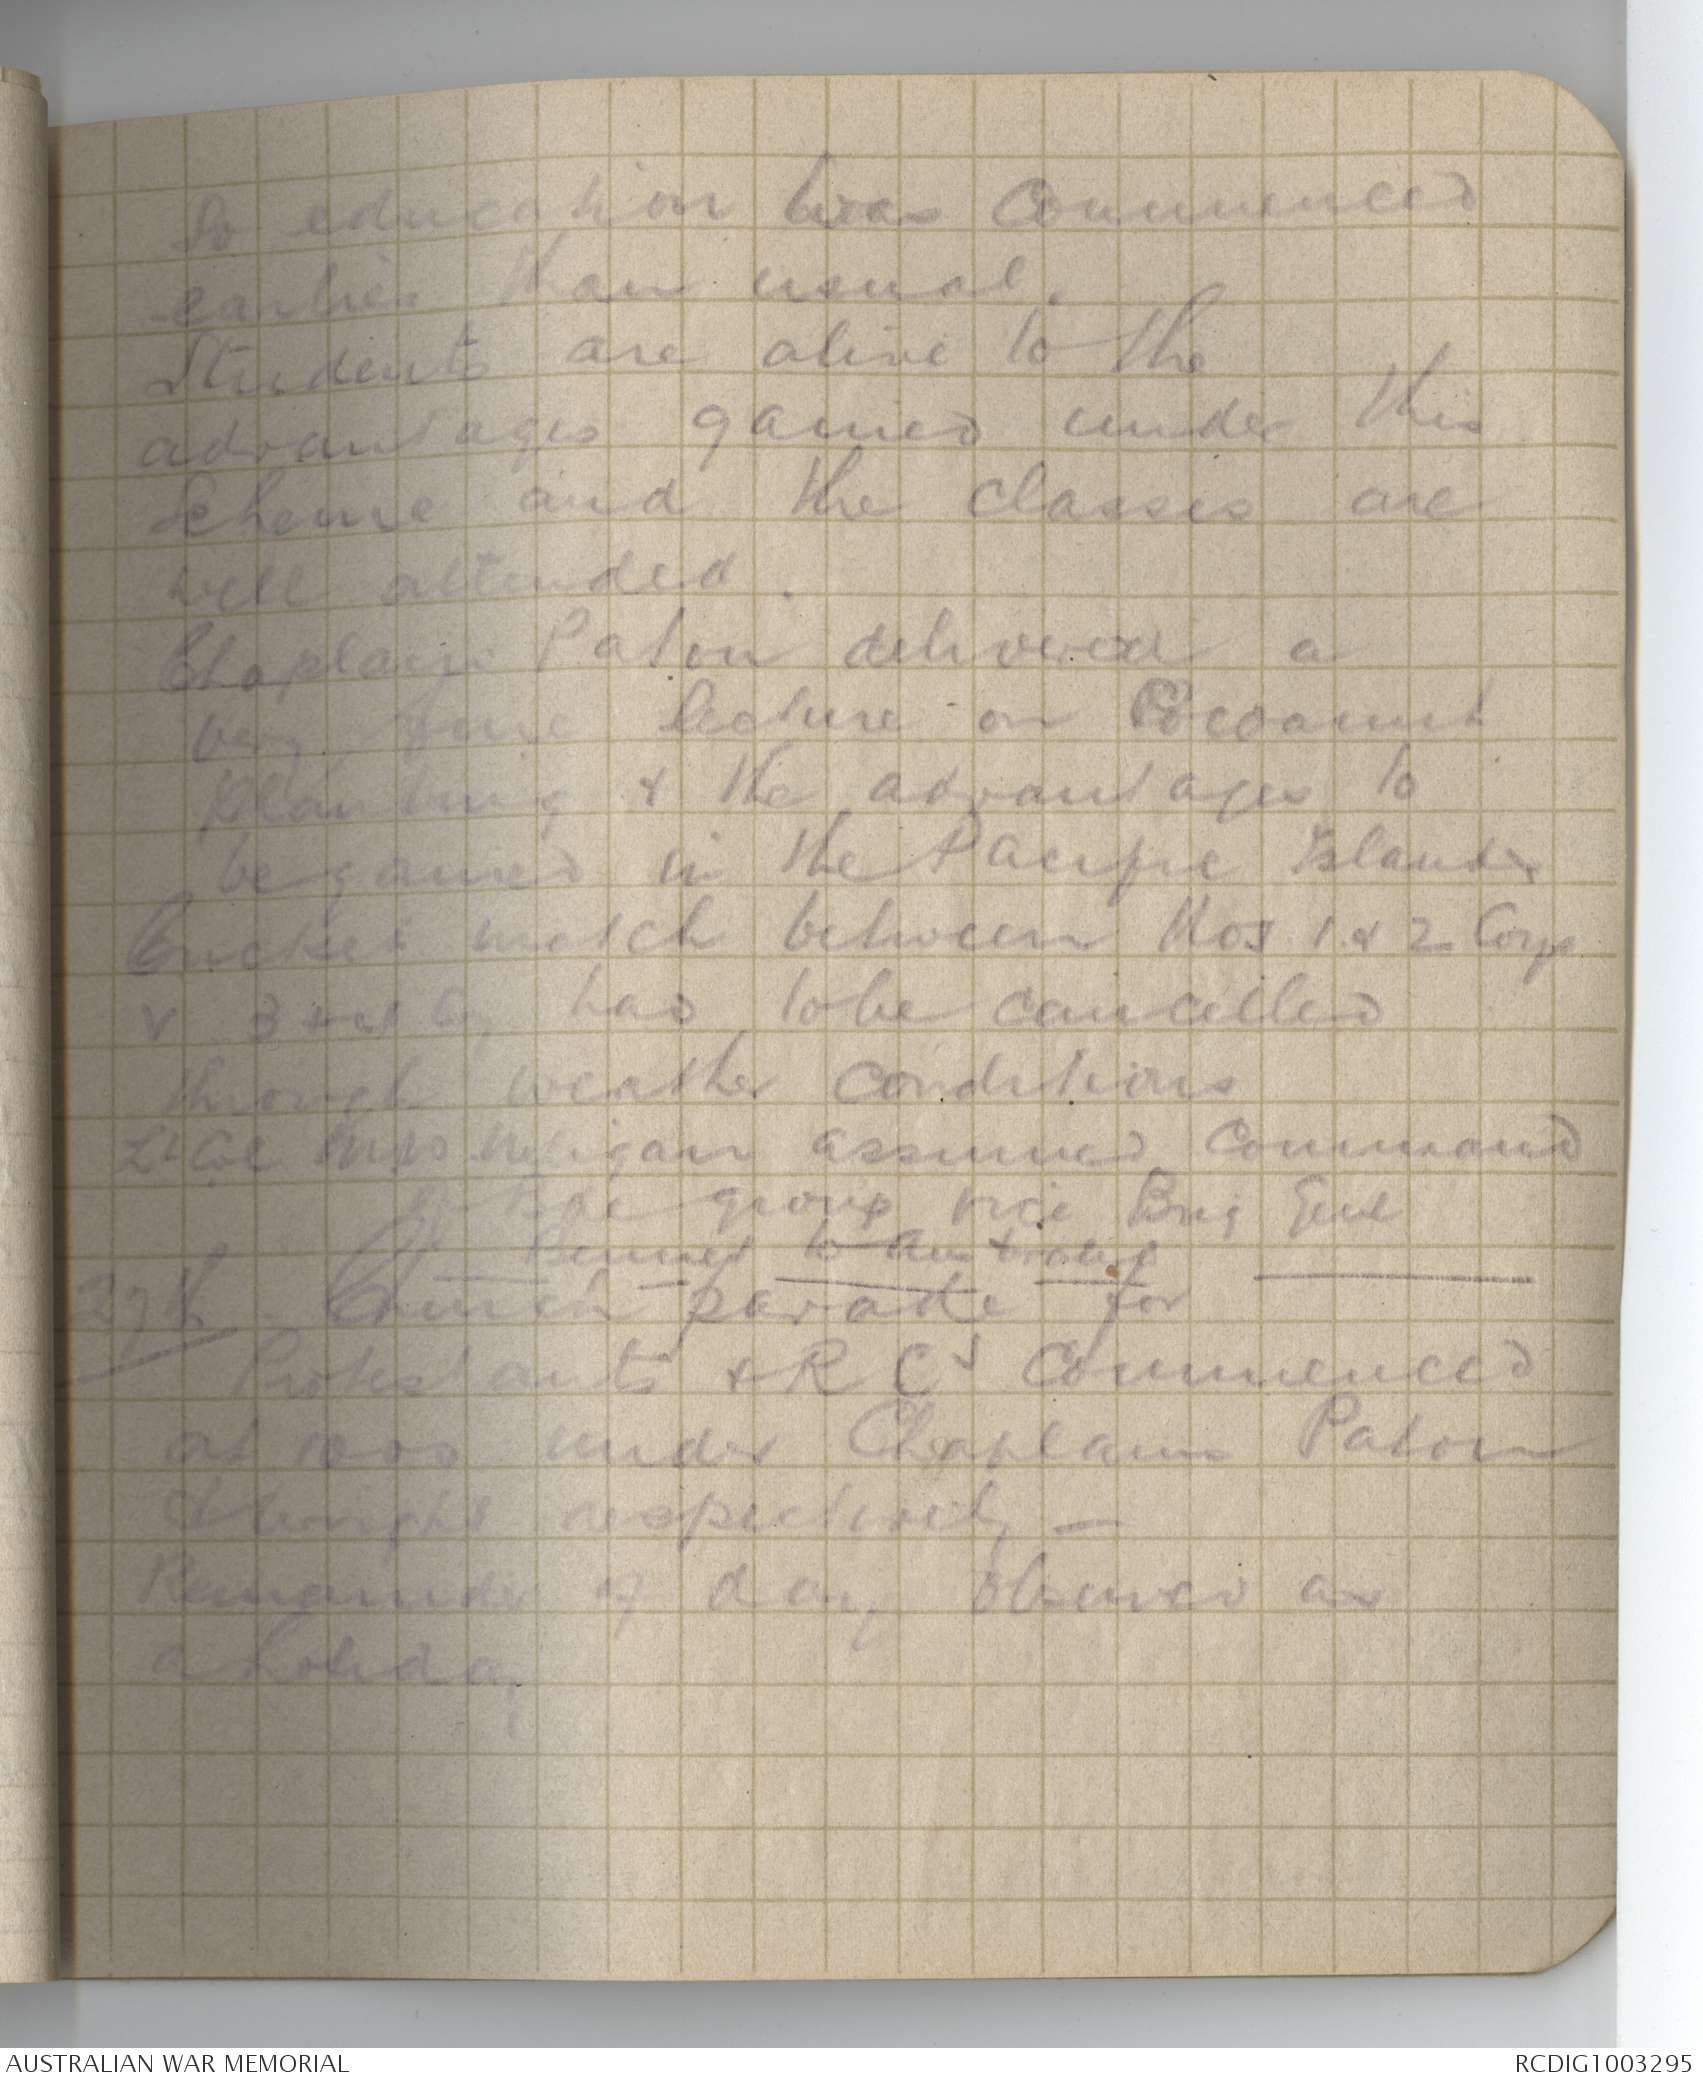 So education was commenced
earlier than usual.
Students are alive to the
advantages gained under this
Scheme and the classes are
well attended.
Chaplain Paton delivered a
very fine lecture on Cocoanut
Planting & the advantages to
be gained in the Pacific Islands
Cricket match between Nos 1 & 2 Coys
v 3 & 4 Coy had to be cancelled
through weather conditions
Lt Col assumed Command
of Bde group vice Brig Genl
to Australia
27th. Church parade for
Protestants & R C's commenced
at 1000 under Chaplains Paton
& respectively —
Remainder of day observed as
a holiday
AUSTRALIAN WAR MEMORIAL
RCDIG1003295